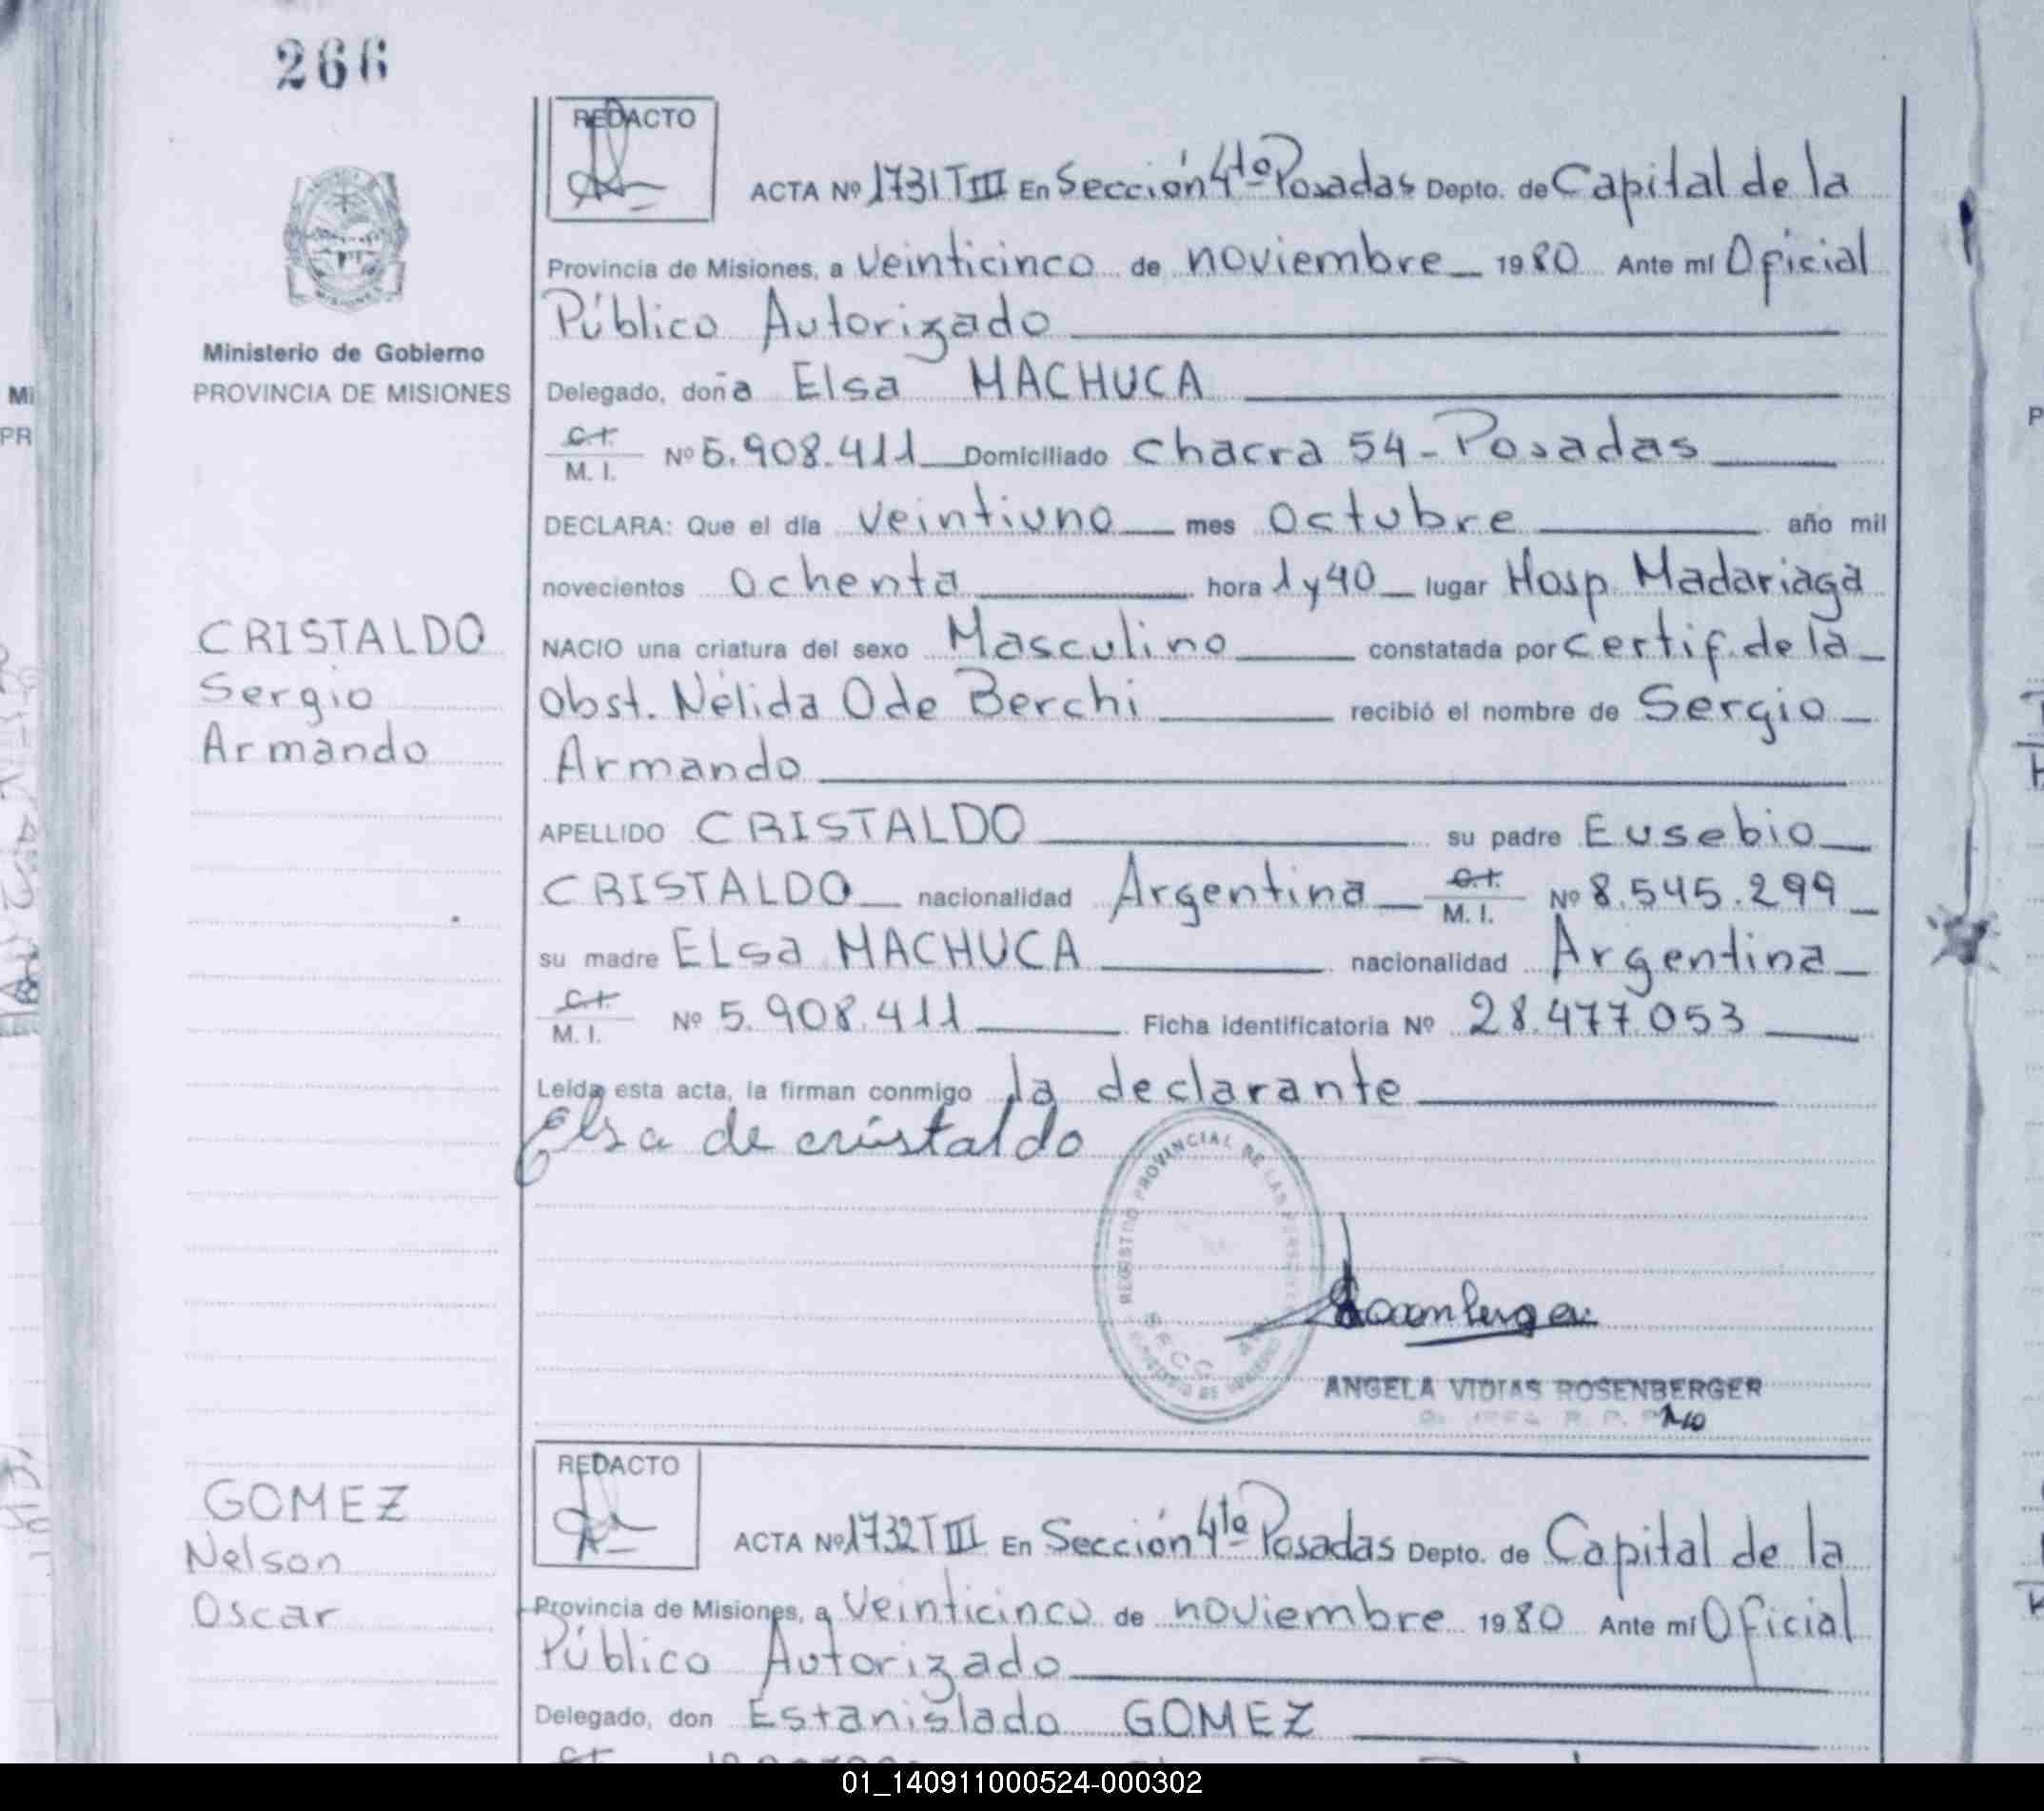 266
REDACTO
ACTA Nº 1731 T III En Sección 4tª Posadas Depto. de Capital de la
Provincia de Misiones, a Veinticinco de noviembre 1980 Ante mí Oficial
Público Autorizado
Ministerio de Gobierno
PROVINCIA DE MISIONES
Delegado, doña Elsa MACHUCA
C.I.
M. I. Nº 5.908.411 Domiciliado chacra 54-Posadas
DECLARA: Que el día Veintiuno mes Octubre año mil
novecientos Ochenta hora 1 y 40 lugar Hosp. Madariaga
CRISTALDO
Sergio
Armando
NACIO una criatura del sexo Masculino constatada por certif. de la
Obst. Nélida Ode Berchi recibió el nombre de Sergio
Armando
APELLIDO CRISTALDO su padre Eusebio
CRISTALDO nacionalidad Argentina C.I. M. I. Nº 8.545.299
su madre ELsa MACHUCA nacionalidad Argentina
C.I.
M. I. Nº 5.908.411 Ficha identificatoria Nº 28.477.053
Leída esta acta, la firman conmigo la declarante
Elsa de cristaldo
REGISTRO PROVINCIAL DE LAS
SECC.
ANGELA VIDIAS ROSENBERGER
GOMEZ
Nelson
Oscar
REDACTO
ACTA Nº 1732 T III En Sección 4tª Posadas Depto. de Capital de la
Provincia de Misiones, a Veinticinco de noviembre 1980 Ante mí Oficial
Público Autorizado
Delegado, don Estanislado GOMEZ
01_140911000524-000302